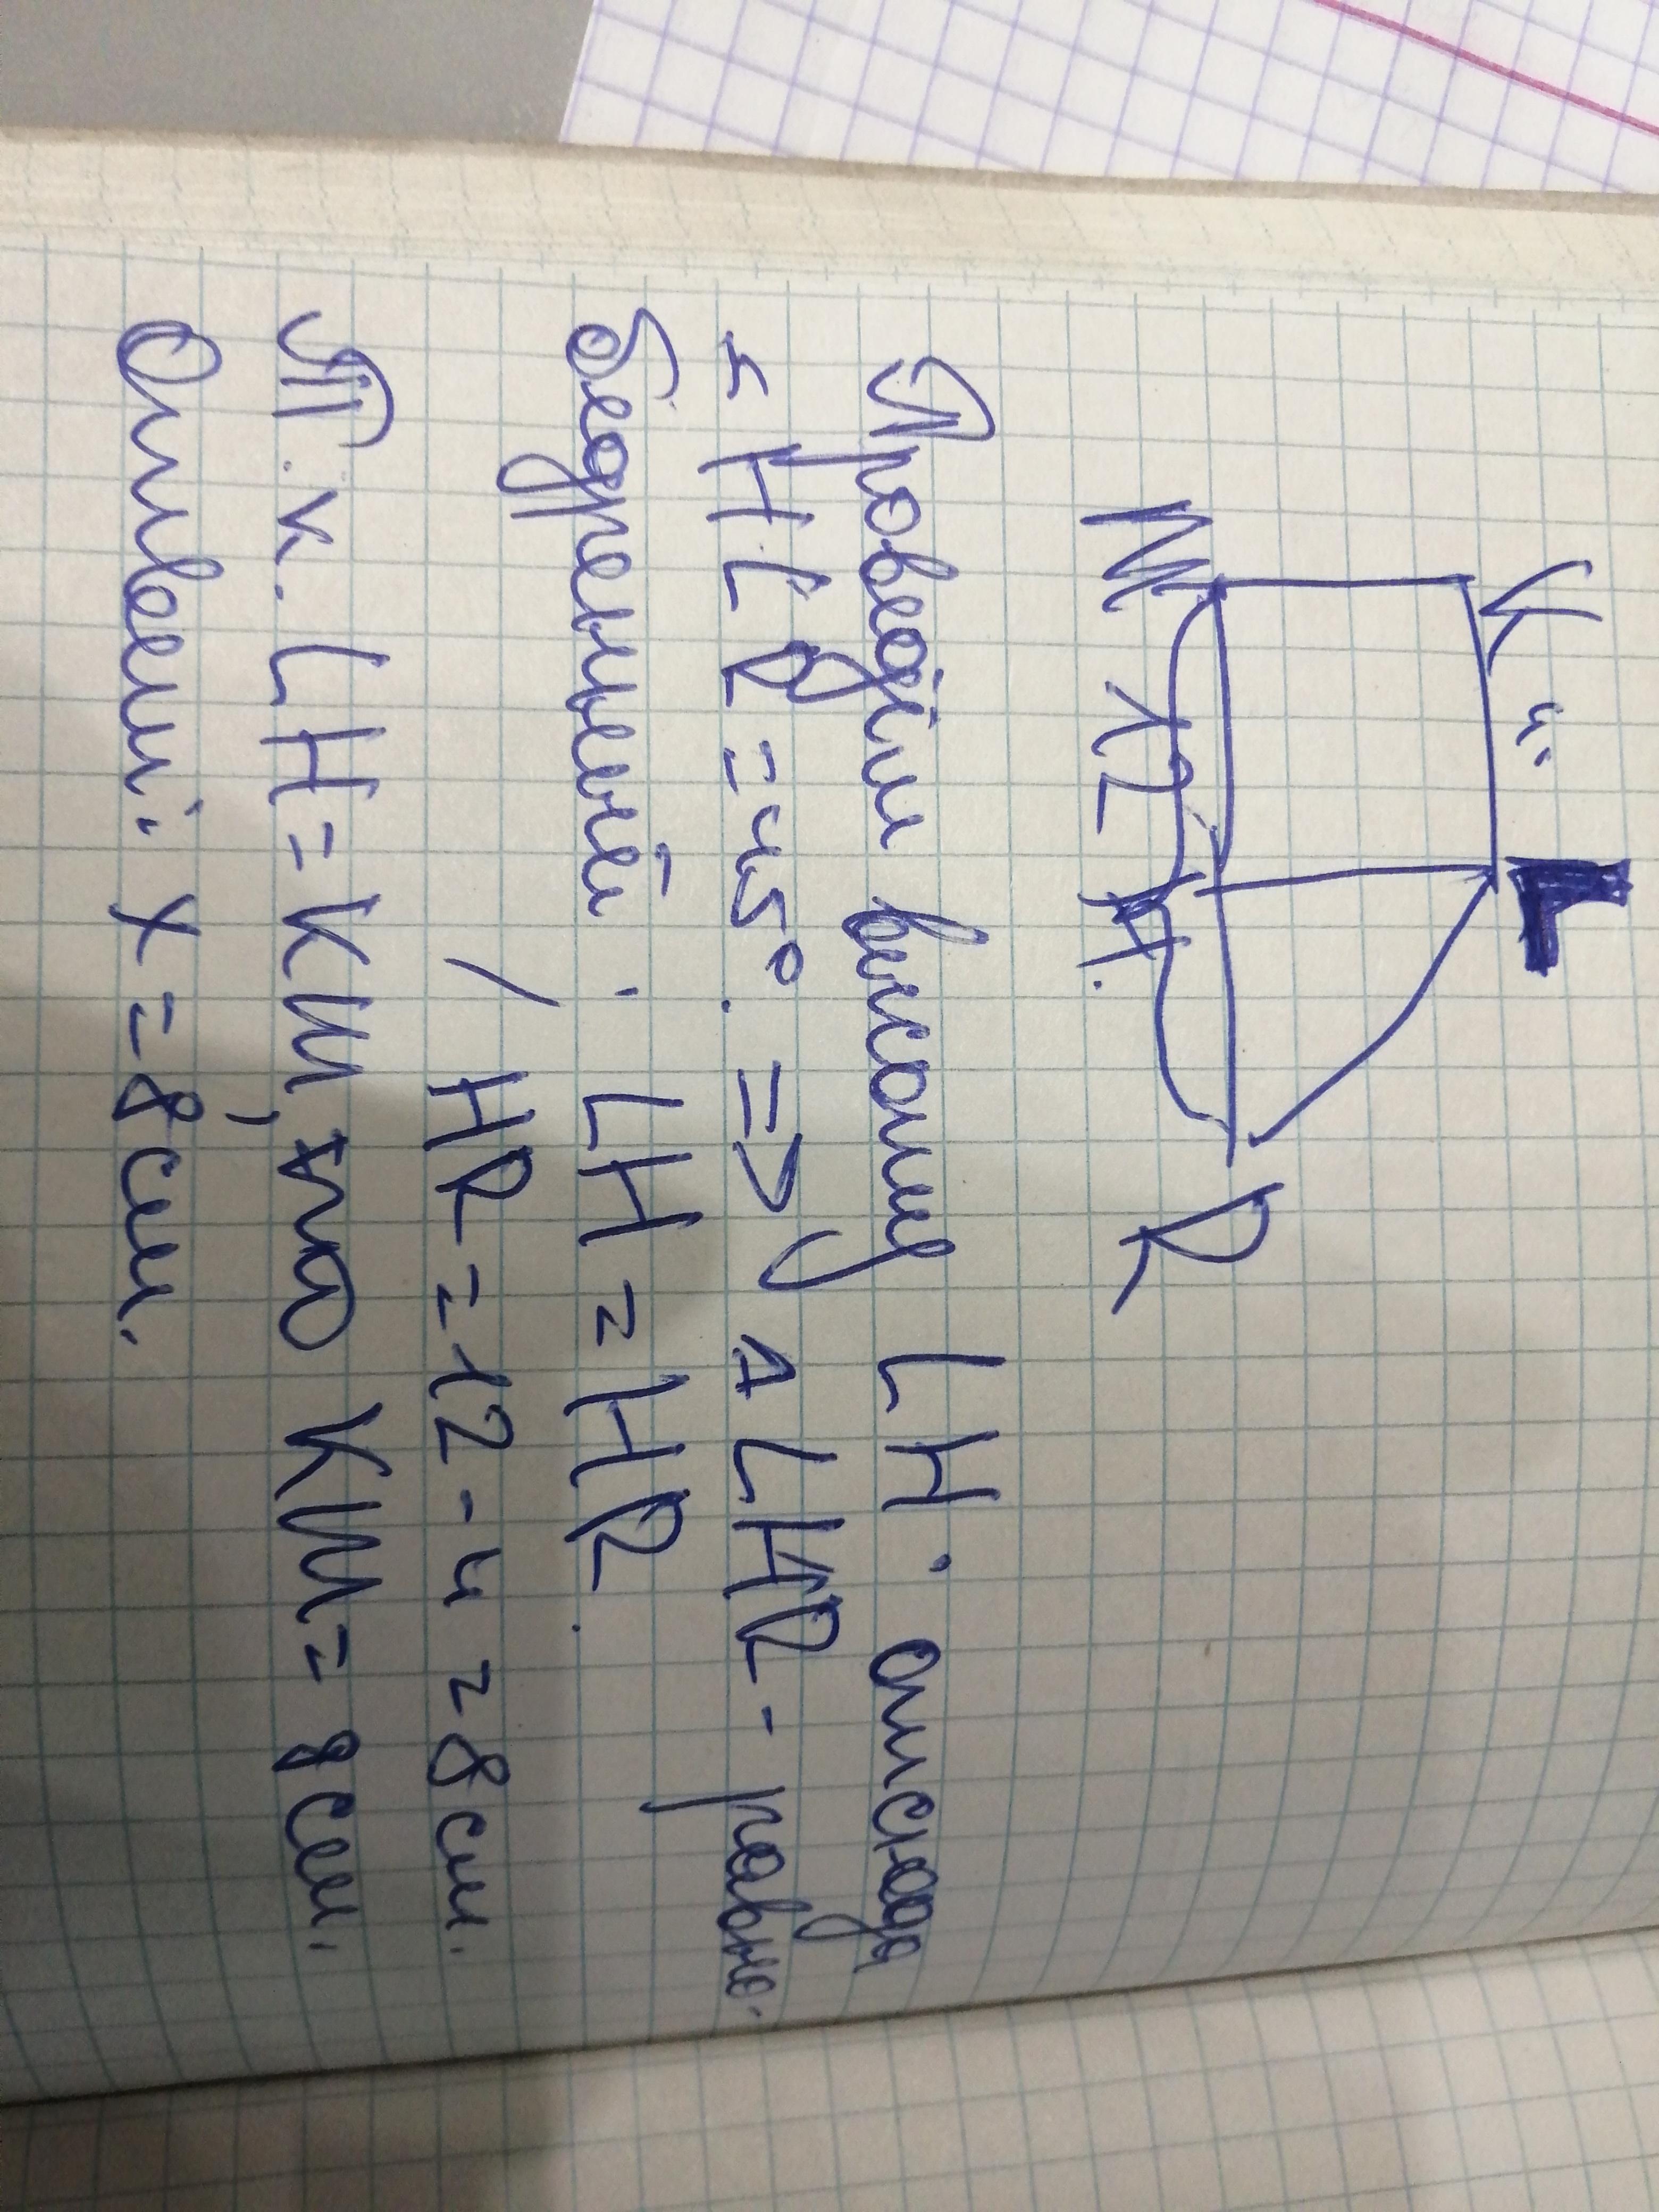 К 4. L
М 12 H. R
Проведём высоту LH. отсюда
∠HLR=45°. => у ΔLHR- равно-
бедренный. LH=HR.
/HR=12-4=8см.
Т.к. LH=КМ, то КМ=8см.
Ответ: х=8см.